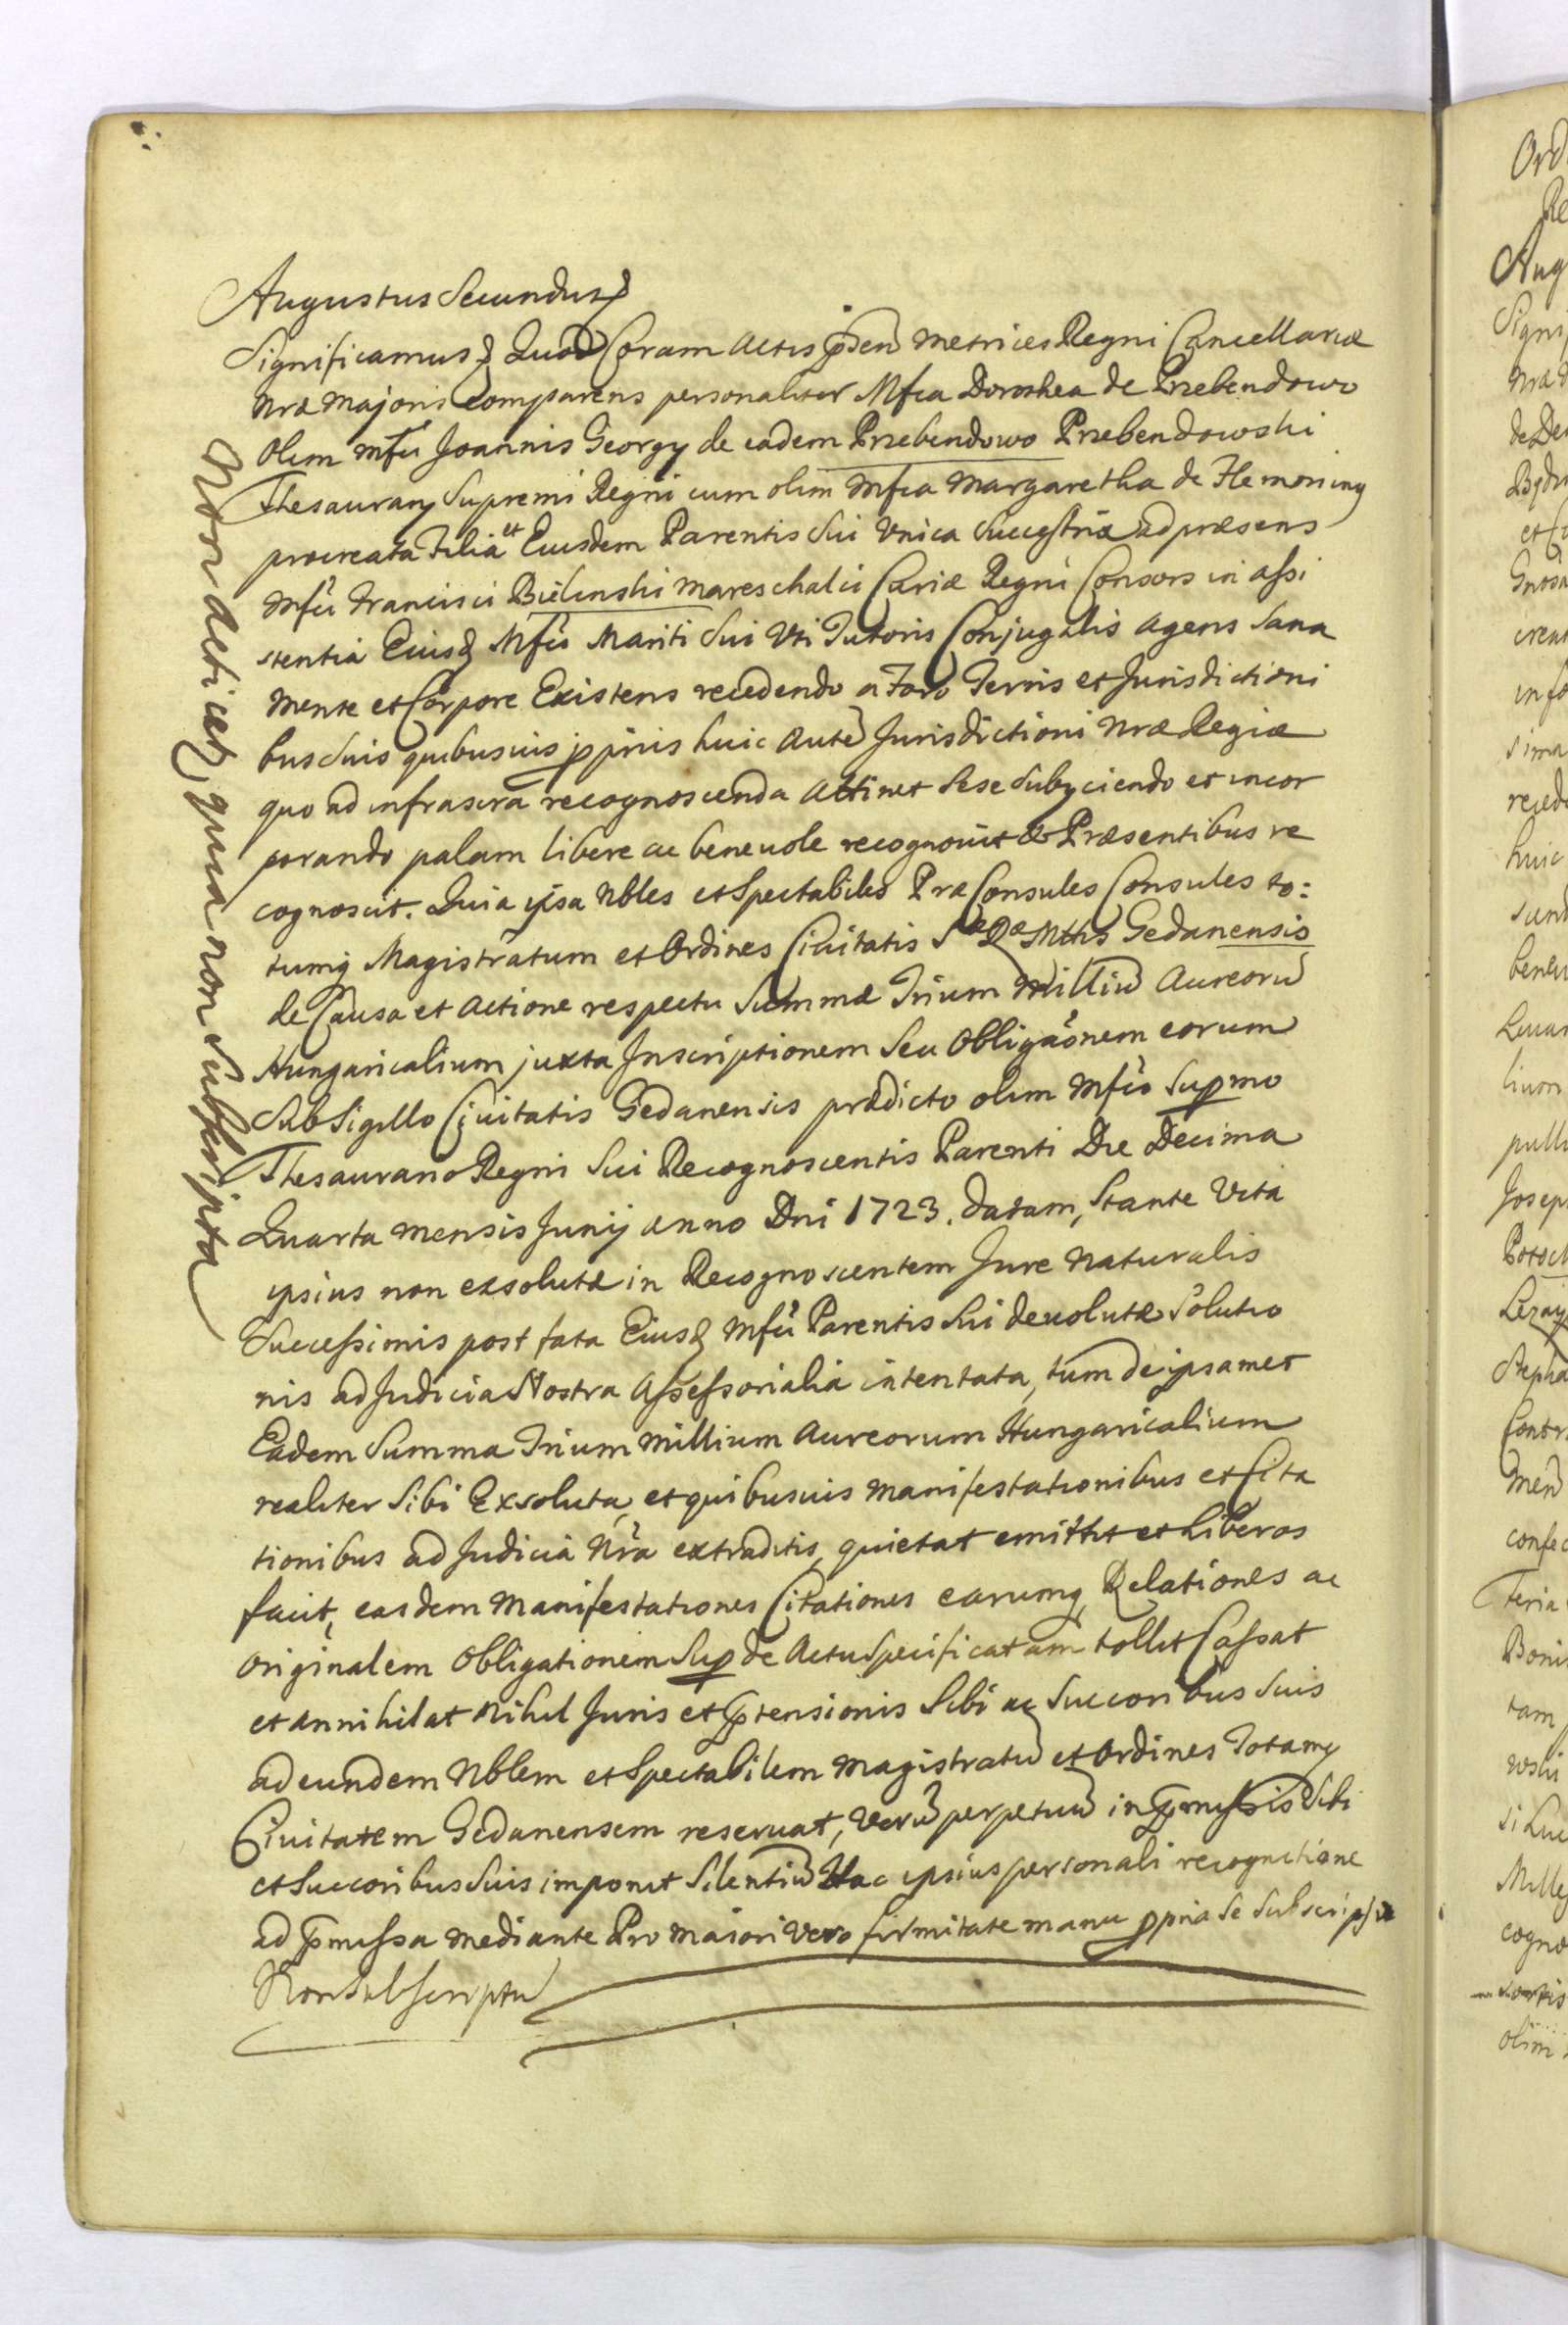 Augustus Secundus
Significamus Quod Coram Actis pñden Metrices Regni Cancellariæ
Nræ Majoris Comparens personaliter Mfca Dorothea de Przebendowo
Olim Mfci Joannis Georgy de eadem Przebendowo Przebendowski
Thesaurary Supremi Regni cum olim Mfca Margaretha de Flemoning
procreata Filia et Eiusdem Parentis Sui Unica Successtrix ad præsens
Mfci Francisci Bielinski Mareschalci Curiæ Regni Consors in assi
stentia Eiusq Mfci Mariti Sui Uti Tutoris Conjugalis agens Sana
Mente et Corpore Existens recedendo a Foro Terris et Jurisdictioni
bus Suis quibusuis ppriis huic Aute Jurisdictioni Nræ Regiæ
quo ad infrascra recognoscenda Attinet Sese Subyciendo et incor
porando palam libere ac beneuole recognouit & Præsentibus re
cognoscit. Quia ipsa Nbles et Spectabiles Præ Consules Consules to:
tumq Magistratum et Ordines Ciuitatis S Ræ Mttis Gedanensis
de Causa et Actione respectu Summæ Trium Milliũ Aureorũ
Hungaricalium juxta Inscriptionem Seu Obligaõnem eorum
Sub Sigillo Ciuitatis Gedanensis prædicto olim Mfco Supmo
Thesaurario Regni Sui Recognoscentis Parenti Die Decima
Quarta Mensis Junij Anno Dni 1723. datam, Stante Vita
ipsius non exsolutæ in Recognoscentem Jure Naturalis
Successionis post fata Eiusq Mfci Parentis Sui deuolutæ Solutio
nis ad Judicia Nostra Assessorialia intentata, tum de ipsamet
Eadem Summa Trium Millium Aureorum Hungaricalium
realiter Sibi Exsoluta, et quibusuis Manifestationibus et Cita
tionibus ad Judicia Nrã extraditis, quietat emittit et Liberos
facit, easdem Manifestationes Citationes earumq Relationes ac
Originalem Obligationem Sup de Actu Specificatam tollit Cassat
et annihilat Nihil Juris et Prtensionis Sibi ac Succoribus Suis
ad eundem Nblem et Spectabilem Magistratũ et Ordines Totamq
Ciuitatem Gedanensem reseruat, Verũ perpetuũ in Prmissis Sibi
et Succoribus Suis imponit Silentiũ Hac ipsius personali recognitione
ad Prmissa mediante Pro Maiori Vero firmitate manu ppria Se Subscripsit
Non Subscriptũ
Non acticet quia non Subscripta